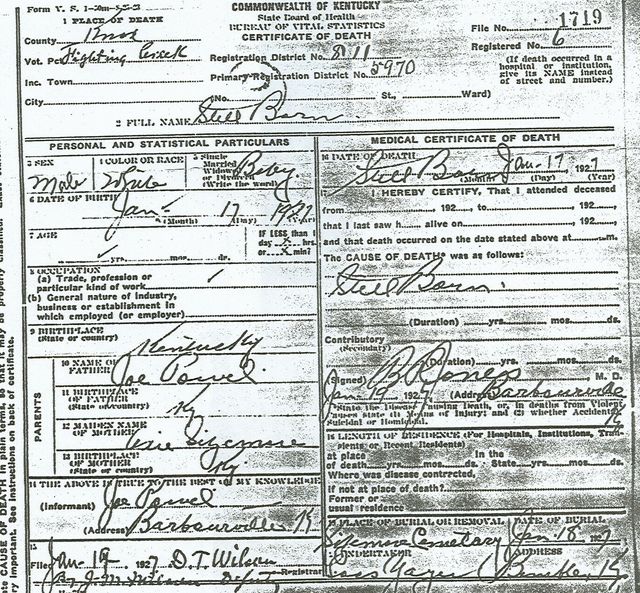 Form V. S. 1-20m-
COMMONWEALTH OF KENTUCKY
State Board of Health
BUREAU OF VITAL STATISTICS
CERTIFICATE OF DEATH
1 PLACE OF DEATH
County Knox
Vot. Pct Fighting Creek
Inc. Town
City
Registration District No. 811
Primary Registration District No. 5970
(No. St., Ward)
File No. 1719
Registered No. 6
(If death occurred in a
hospital or institution,
give its NAME instead
of street and number.)
2 FULL NAME Still Born
PERSONAL AND STATISTICAL PARTICULARS
3 SEX
Male
4 COLOR OR RACE
White
5 Single
Married
Widowed
or Divorced
(Write the word)
Baby
6 DATE OF BIRTH
Jan 17 1927
(Month) (Day) (Year)
7 AGE
yrs. mos. ds.
IF LESS than 1
day hrs.
or min?
8 OCCUPATION
(a) Trade, profession or
particular kind of work
(b) General nature of industry,
business or establishment in
which employed (or employer)
9 BIRTHPLACE
(State or country)
Kentucky
PARENTS
10 NAME OF
FATHER
Joe Powel
11 BIRTHPLACE
OF FATHER
(State or country)
Ky
12 MAIDEN NAME
OF MOTHER
Sizemore
13 BIRTHPLACE
OF MOTHER
(State or country)
Ky
14 THE ABOVE IS TRUE TO THE BEST OF MY KNOWLEDGE
(Informant) Joe Powel
(Address) Barbourville K
15
Filed Jan 19 1927 D.T. Wilson
Registrar
By J. M. Deputy
MEDICAL CERTIFICATE OF DEATH
16 DATE OF DEATH
Still Born Jan-17 1927
(Month) (Day) (Year)
17 I HEREBY CERTIFY, That I attended deceased
from 192 , to 192 ,
that I last saw h alive on 192 ,
and that death occurred on the date stated above at m.
The CAUSE OF DEATH* was as follows:
Still Born.
(Duration) yrs. mos. ds.
Contributory
(Secondary)
(Duration) yrs. mos. ds.
(Signed) Jones M. D.
Jan 19 1927 (Address) Barbourville
Ky
*State the Disease Causing Death, or, in deaths from Violent
Causes state (1) Means of Injury; and (2) whether Accidental,
Suicidal or Homicidal.
18 LENGTH OF RESIDENCE (For Hospitals, Institutions, Tran-
sients or Recent Residents)
At place In the
of death yrs. mos. ds. State yrs. mos. ds.
Where was disease contracted,
if not at place of death?
Former or
usual residence
19 PLACE OF BURIAL OR REMOVAL DATE OF BURIAL
Sizemore Cemetary Jan 18 1927
20 UNDERTAKER ADDRESS